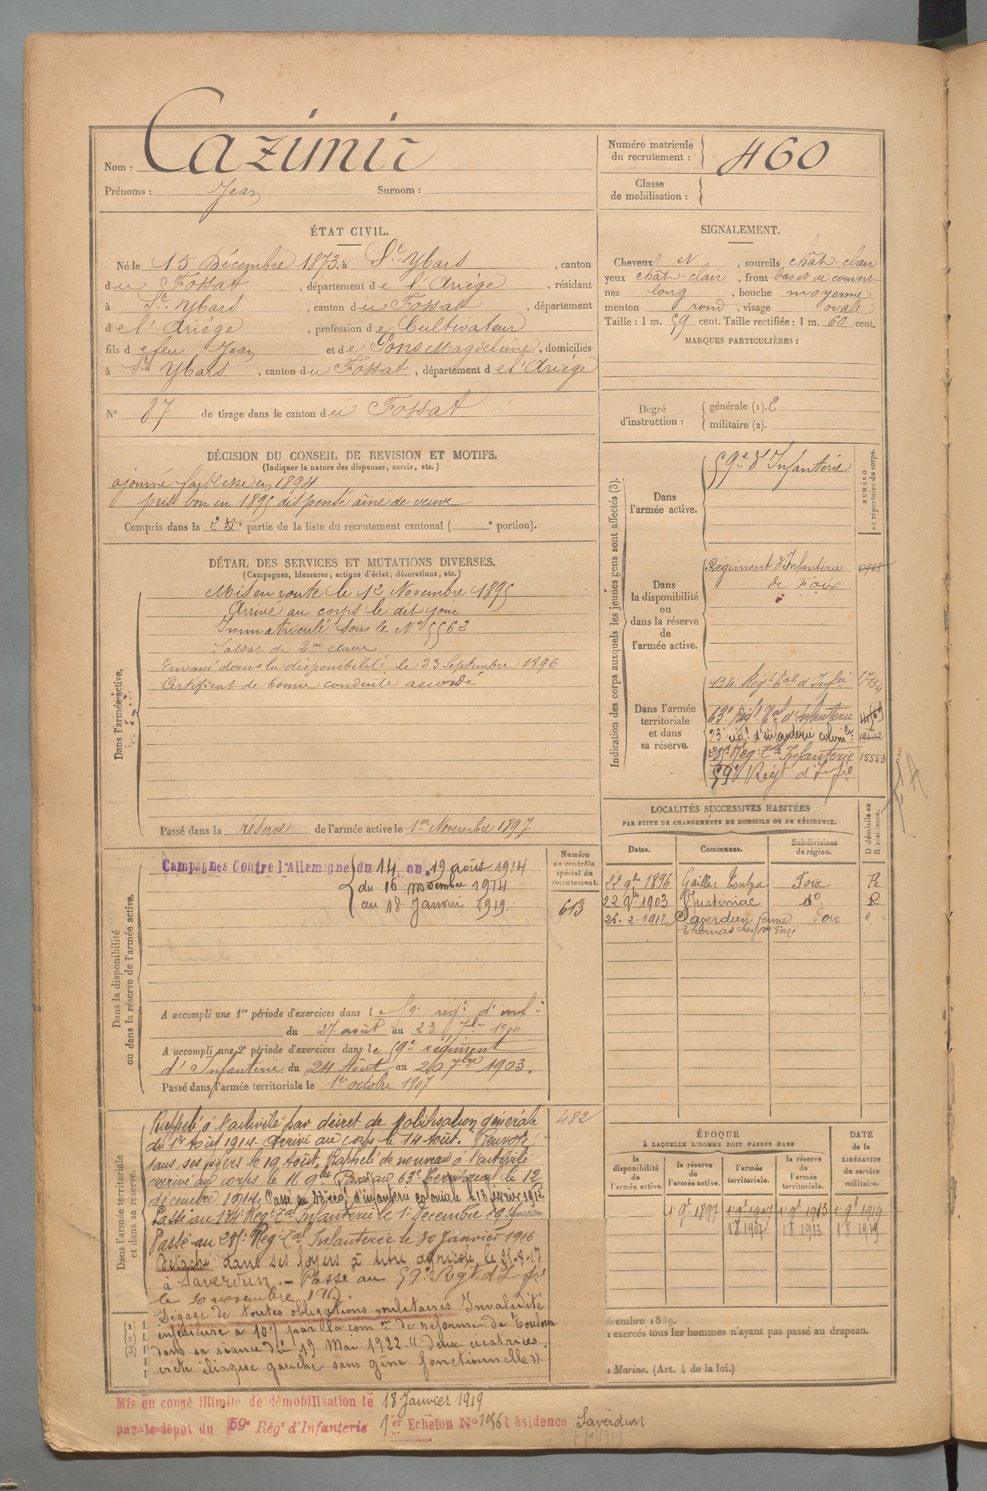 Nom : Cazimir
Prénoms : Jean Surnom :
Numéro matricule du recrutement : 460
Classe de mobilisation :
ÉTAT CIVIL.
Né le 15 Décembre 1873, à St Ybars, canton
du Fossat, département de l'Ariège, résidant
à St Ybars, canton du Fossat, département
de l'Ariège, profession de Cultivateur
fils de feu Jean et de Pons Magdeleine, domiciliés
à St Ybars, canton du Fossat, département de l'Ariège
N° 87 de tirage dans le canton du Fossat
SIGNALEMENT.
Cheveux et, sourcils chât-clair
yeux chât-clair, front bas et couvert
nez long, bouche moyenne
menton rond, visage ovale
Taille : 1 m. 59 cent. Taille rectifiée : 1 m. 60 cent.
MARQUES PARTICULIÈRES :
Degré d'instruction : générale (1). 2
militaire (2).
DÉCISION DU CONSEIL DE REVISION ET MOTIFS.
(Indiquer la nature des dispenses, sursis, etc.)
ajourné faiblesse en 1894
pris bon en 1895 dispensé aîné de veuve
Compris dans la 2e partie de la liste du recrutement cantonal ( e portion).
DÉTAIL DES SERVICES ET MUTATIONS DIVERSES.
(Campagnes, blessures, actions d'éclat, décorations, etc.)
Dans l'armée active.
Mis en route le 12 Novembre 1895
Arrivé au corps le dit jour
Immatriculé sous le N° 5562
Soldat de 2me classe
Envoyé dans la disponibilité le 23 Septembre 1896
Certificat de bonne conduite accordé
Passé dans la réserve de l'armée active le 1er Novembre 1897
Indication des corps auxquels les jeunes gens sont affectés (3).
NUMÉRO au répertoire du corps.
Dans l'armée active.
59e d'Infanterie
Dans la disponibilité ou dans la réserve de l'armée active.
Régiment d'Infanterie
de Foix
Dans l'armée territoriale et dans sa réserve.
134e Régt tal d'Infie
63e Régt Tal d'Infanterie
23e régt d'infanterie coloniale
Reg. Tal Infanterie 15553
59e Régt d'Infie
LOCALITÉS SUCCESSIVES HABITÉES
PAR SUITE DE CHANGEMENTS DE DOMICILE OU DE RÉSIDENCE.
Dates. Communes. Subdivisions de région. D domicile ou R résidence.
22 9bre 1896 Gaillac Toulza Foix R
22 9bre 1903 Justiniac do R
26-2-1912 Saverdun ferme Foix
Thomas chez Mr
Dans la disponibilité ou dans la réserve de l'armée active.
Numéro au contrôle spécial du recrutement.
613
Campagnes Contre l'Allemagne du 14 au 19 août 1914
du 16 novembre 1914
au 18 Janvier 1919.
A accompli une 1re période d'exercices dans le 59e régt d'infie
du 27 août au 23 7bre 1900
A accompli une 2e période d'exercices dans le 59e régiment
d'Infanterie du 24 Août au 20 7bre 1903.
Passé dans l'armée territoriale le 1er octobre 1907
Dans l'armée territoriale et dans sa réserve.
482
Rappelé à l'activité par décret de Mobilisation générale
du 1er Août 1914. Arrivé au corps le 14 Août. Renvoyé
dans ses foyers le 19 Août. Rappelé de nouveau à l'activité
arrivé au corps le 16 9bre Passé au 63e Territorial le 12
décembre 1914. Passé au 23e régt d'infanterie coloniale le 13 février 1915
Passé au 134e Régt Tal Infanterie le 1er Décembre 1915
Passé au Régt Tal Infanterie le 30 Janvier 1916
Détaché dans ses foyers à titre agricole le
à Saverdun. - Passé au 59e Régt d'Infie
le 10 novembre 1917.
Dégagé de toutes obligations militaires Invalidité
inférieure à 10% par la comon de réforme de Toulouse
dans sa séance du 19 Mai 1922 "deux cicatrices
crête iliaque gauche sans gêne fonctionnelle"
ÉPOQUE
A LAQUELLE L'HOMME DOIT PASSER DANS
la disponibilité de l'armée active. la réserve de l'armée active. l'armée territoriale. la réserve de l'armée territoriale.
DATE de la LIBÉRATION du service militaire.
1 9bre 1897 1 9bre 1907 1 9bre 1913 1 9bre 1919
1 8 1907 1 8 1913 1 8 1919
écembre 1889.
exercés tous les hommes n'ayant pas passé au drapeau.
Marine. (Art. 4 de la loi.)
Mis en congé illimité de démobilisation le 18 Janvier 1919
par le dépôt du 59e Régt d'Infanterie 1er Echelon N° 1096 Résidence Saverdun